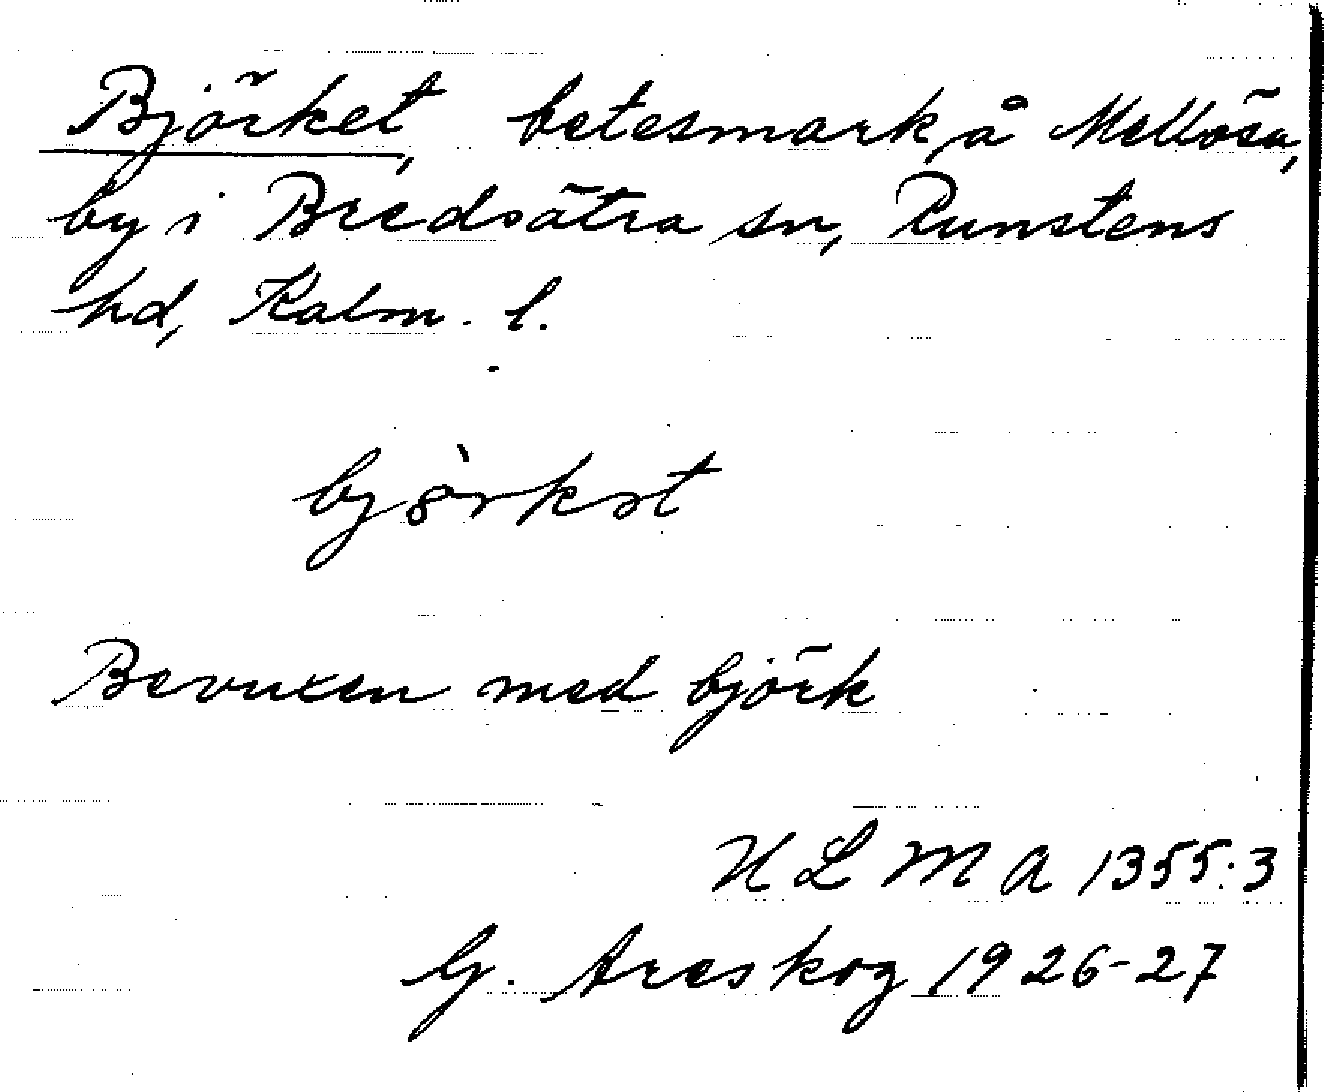 Björket, betesmark å Mellösa,
by i Bredsätra sn, Runstens
hd, Kalm. l.
bjö̀rkət
Bevuxen med björk
ULMA 1355:3
G. Areskog 1926-27